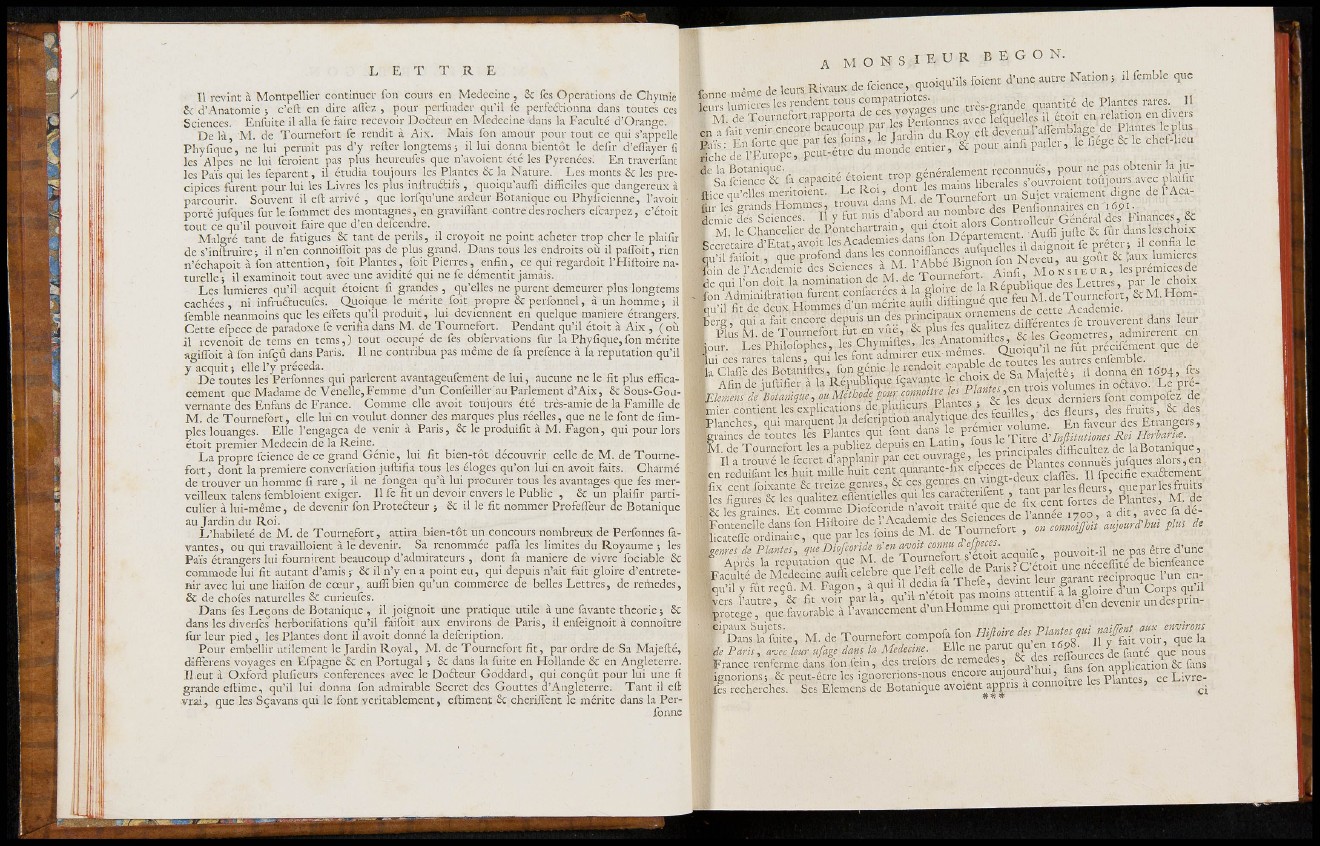 LETTRE
Il revint à Montpellier continuer ſon cours en Medecine, & ſes Operations de Chymie
& d'Anatomie; c'eſt en dire aſſez, pour perſuader qu'il ſe perfectionna dans toutes ces
Sciences. Enſuite il alla ſe faire recevoir Docteur en Medecine dans la Faculté d'Orange.
De là, M. de Tournefort ſe rendit à Aix. Mais ſon amour pour tout ce qui s'appelle
Phyſique, ne lui permit pas d'y reſter longtems; il lui donna bientôt le deſir d'eſſayer ſi
les Alpes ne lui ſeroient pas plus heureuſes que n'avoient été les Pyrenées. En traverſant
les Païs qui les ſeparent, il étudia toujours les Plantes & la Nature. Les monts & les pre-
cipices furent pour lui les Livres les plus inſtructifs, quoiqu'auſſi difficiles que dangereux à
parcourir. Souvent il eſt arrivé, que lorſqu'une ardeur Botanique ou Phyſicienne, l'avoit
porté juſques ſur le ſommet des montagnes, en graviſſant contre des rochers eſcarpez, c'étoit
tout ce qu'il pouvoit faire que d'en deſcendre.
Malgré tant de fatigues & tant de perils, il croyoit ne point acheter trop cher le plaiſir
de s'inſtruire; il n'en connoiſſoit pas de plus grand. Dans tous les endroits où il paſſoit, rien
n'échapoit à ſon attention, ſoit Plantes, ſoit Pierres, enfin, ce qui regardoit l'Hiſtoire na-
turelle; il examinoit tout avec une avidité qui ne ſe démentit jamais.
Les lumieres qu'il acquit étoient ſi grandes, qu'elles ne purent demeurer plus longtems
cachées, ni infructueuſes. Quoique le mérite ſoit propre & perſonnel, à un homme; il
ſemble neanmoins que les effets qu'il produit, lui deviennent en quelque maniere étrangers.
Cette eſpece de paradoxe ſe verifia dans M. de Tournefort. Pendant qu'il étoit à Aix, (où
il revenoit de tems en tems,) tout occupé de ſes obſervations ſur la Phyſique, ſon mérite
agiſſoit à ſon inſçû dans Paris. Il ne contribua pas même de ſa preſence à la reputation qu'il
y acquit; elle l'y préceda.
De toutes les Perſonnes qui parlerent avantageuſement de lui, aucune ne le fit plus effica-
cement que Madame de Vénelle, Femme d'un Conſeiller au Parlement d'Aix, & Sous-Gou-
vernante des Enfans de France. Comme elle avoit toujours été très-amie de la Famille de
M. de Tournefort, elle lui en voulut donner des marques plus réelles, que ne le ſont de ſim-
ples louanges. Elle l'engagea de venir à Paris, & le produiſit à M. Fagon, qui pour lors
étoit premier Medecin de la Reine.
La propre ſcience de ce grand Génie, lui fit bien-tôt découvrir celle de M. de Tourne-
fort, dont la premiere converſation juſtifia tous les éloges qu'on lui en avoit faits. Charmé
de trouver un homme ſi rare, il ne ſongea qu'à lui procurer tous les avantages que ſes mer-
veilleux talens ſembloient exiger. Il ſe fit un devoir envers le Public, & un plaiſir parti-
culier à lui-même, de devenir ſon Protecteur; & il le fit nommer Profeſſeur de Botanique
au Jardin du Roi.
L'habileté de M. de Tournefort, attira bien-tôt un concours nombreux de Perſonnes ſa-
vantes, ou qui travailloient à le devenir. Sa renommée paſſa les limites du Royaume; les
Païs étrangers lui fournirent beaucoup d'admirateurs, dont ſa maniere de vivre ſociable &
commode lui fit autant d'amis; & il n'y en a point eu, qui depuis n'ait fait gloire d'entrete-
nir avec lui une liaiſon de cœur, auſſi bien qu'un commerce de belles Lettres, de remedes,
& de choſes naturelles & curieuſes.
Dans ſes Leçons de Botanique, il joignoit une pratique utile à une ſavante theorie; &
dans les diverſes herboriſations qu'il faiſoit aux environs de Paris, il enſeignoit à connoître
ſur leur pied, les Plantes dont il avoit donné la deſcription.
Pour embellir utilement le Jardin Royal, M. de Tournefort fit, par ordre de Sa Majeſté,
differens voyages en Eſpagne & en Portugal; & dans la ſuite en Hollande & en Angleterre.
Il eut à Oxford pluſieurs conferences avec le Docteur Goddard, qui conçût pour lui une ſi
grande eſtime, qu'il lui donna ſon admirable Secret des Gouttes d'Angleterre. Tant il eſt
vrai, que les Sçavans qui le ſont veritablement, eſtiment & cheriſſent le mérite dans la Per-
ſonne
A MONSIEUR BEGON.
ſonne même de leurs Rivaux de ſcience, quoiqu'ils ſoient d'une autre Nation; il ſemble que
leurs lumieres les rendent tous compatriotes.
M. de Tournefort rapporta de ces voyages une très-grande quantité de Plantes rares. Il
en a fait venir encore beaucoup par les Perſonnes avec leſquelles il étoit en relation en divers
Païs: En ſorte que par ſes ſoins, le Jardin du Roy eſt devenu l'aſſemblage de Plantes le plus
riche de l'Europe, peut-être du monde entier, & pour ainſi parler, le ſiége & le chef-lieu
de la Botanique.
Sa ſcience & ſa capacité étoient trop généralement reconnuës, pour ne pas obtenir la ju-
ſtice qu'elles meritoient. Le Roi, dont les mains liberales s'ouvroient toûjours avec plaiſir
ſur les grands Hommes, trouva dans M. de Tournefort un Sujet vraiement digne de l'Aca-
demie des Sciences. Il y fut mis d'abord au nombre des Penſionnaires en 1691.
M. le Chancelier de Pontchartrain, qui étoit alors Controlleur Général des Finances, &
Secretaire d'Etat, avoit les Academies dans ſon Département. Auſſi juſte & ſûr dans les choix
qu'il faiſoit, que profond dans les connoiſſances auſquelles il daignoit ſe prêter; il confia le
ſoin de l'Academie des Sciences à M. l'Abbé Bignon ſon Neveu, au goût & aux lumieres
de qui l'on doit la nomination de M. de Tournefort. Ainſi, MONSIEUR, les prémices de
ſon Adminiſtration furent conſacrées à la gloire de la République des Lettres, par le choix
qu'il fit de deux Hommes d'un mérite auſſi diſtingué que feu M. de Tournefort, & M. Hom-
berg, qui a fait encore depuis un des principaux ornemens de cette Academie.
Plus M. de Tournefort fut en vûë, & plus ſes qualitez differentes ſe trouverent dans leur
jour. Les Philoſophes, les Chymiſtes, les Anatomiſtes, & les Geometres, admirerent en
lui ces rares talens, qui les font admirer eux-mêmes. Quoiqu'il ne fût préciſément que de
la Claſſe des Botaniſtes, ſon génie le rendoit capable de toutes les autres enſemble.
Afin de juſtifier à la République ſçavante le choix de Sa Majeſté; il donna en 1694, ſes
Elemens de Botanique, ou Méthode pour connoître les Plantes, en trois volumes in octavo. Le pré-
mier contient les explications de pluſieurs Plantes; & les deux derniers ſont compoſez de
Planches, qui marquent la deſcription analytique des feuilles, des fleurs, des fruits, & des
graines de toutes les Plantes qui ſont dans le prémier volume. En faveur des Etrangers,
M. de Tournefort les a publiez depuis en Latin, ſous le Titre d'Inſtitutiones Rei Herbariæ.
Il a trouvé le ſecret d'applanir par cet ouvrage, les principales difficultez de la Botanique,
en reduiſant les huit mille huit cent quarante-ſix eſpeces de Plantes connuës juſques alors, en
ſix cent ſoixante & treize genres, & ces genres en vingt-deux claſſes. Il ſpecifie exactement
les figures & les qualitez eſſentielles qui les caracteriſent, tant par les fleurs, que par les fruits
& les graines. Et comme Dioſcoride n'avoit traité que de ſix cent ſortes de Plantes, M. de
Fontenelle dans ſon Hiſtoire de l'Academie des Sciences de l'année 1700, a dit, avec ſa dé-
licateſſe ordinaire, que par les ſoins de M. de Tournefort, on connoiſſoit aujourd'hui plus de
genres de Plantes, que Dioſcoride n'en avoit connu d'eſpeces.
Après la reputation que M. de Tournefort s'étoit acquiſe, pouvoit-il ne pas être d'une
Faculté de Medecine auſſi celebre que l'eſt celle de Paris? C'étoit une néceſſité de bienſeance
qu'il y fût reçû. M. Fagon, à qui il dedia ſa Theſe, devint leur garant réciproque l'un en-
vers l'autre, & fit voir par là, qu'il n'étoit pas moins attentif à la gloire d'un Corps qu'il
protege, que favorable à l'avancement d'un Homme qui promettoit d'en devenir un des prin-
cipaux Sujets.
Dans la ſuite, M. de Tournefort compoſa ſon Hiſtoire des Plantes qui naiſſent aux environs
de Paris, avec leur uſage dans la Medecine. Elle ne parut qu'en 1698. Il y fait voir, que la
France renferme dans ſon ſein, des treſors de remedes, & des reſſources de ſanté que nous
ignorions; & peut-être les ignorerions-nous encore aujourd'hui, ſans ſon application & ſans
ſes recherches. Ses Elemens de Botanique avoient appris à connoître les Plantes, ce Livre-
*** ci